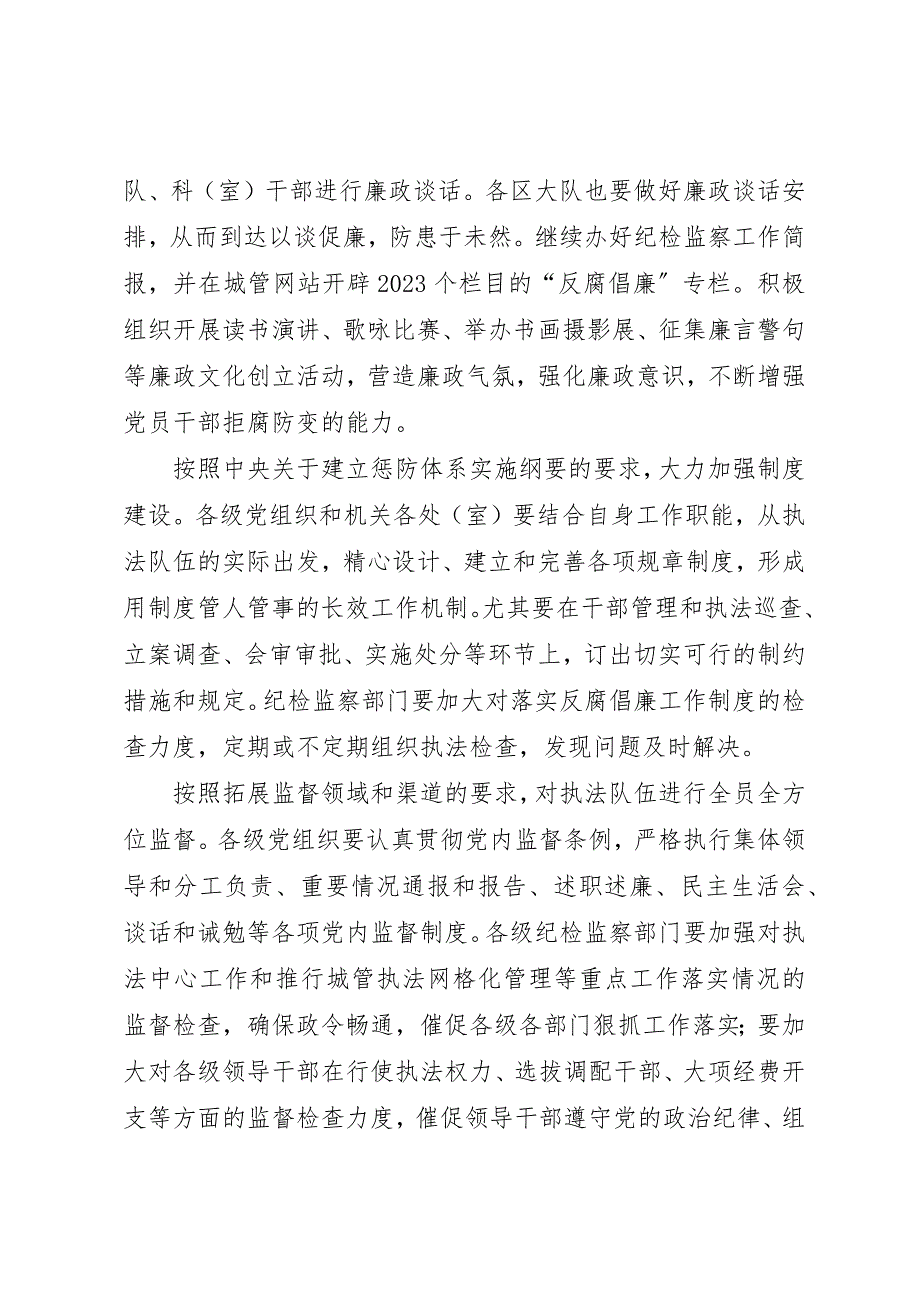 队、科（室）干部进行廉政谈话。各区大队也要做好廉政谈话安
排，从而到达以谈促廉，防患于未然。继续办好纪检监察工作简
报，并在城管网站开辟 2023 个栏目的“反腐倡廉〞专栏。积极
组织开展读书演讲、歌咏比赛、举办书画摄影展、征集廉言警句
等廉政文化创立活动，营造廉政气氛，强化廉政意识，不断增强
党员干部拒腐防变的能力。
按照中央关于建立惩防体系实施纲要的要求，大力加强制度
建设。各级党组织和机关各处（室）要结合自身工作职能，从执
法队伍的实际出发，精心设计、建立和完善各项规章制度，形成
用制度管人管事的长效工作机制。尤其要在干部管理和执法巡查、
立案调查、会审审批、实施处分等环节上，订出切实可行的制约
措施和规定。纪检监察部门要加大对落实反腐倡廉工作制度的检
查力度，定期或不定期组织执法检查，发现问题及时解决。
按照拓展监督领域和渠道的要求，对执法队伍进行全员全方
位监督。各级党组织要认真贯彻党内监督条例，严格执行集体领
导和分工负责、重要情况通报和报告、述职述廉、民主生活会、
谈话和诫勉等各项党内监督制度。各级纪检监察部门要加强对执
法中心工作和推行城管执法网格化管理等重点工作落实情况的
监督检查，确保政令畅通，催促各级各部门狠抓工作落实；要加
大对各级领导干部在行使执法权力、选拔调配干部、大项经费开
支等方面的监督检查力度，催促领导干部遵守党的政治纪律、组